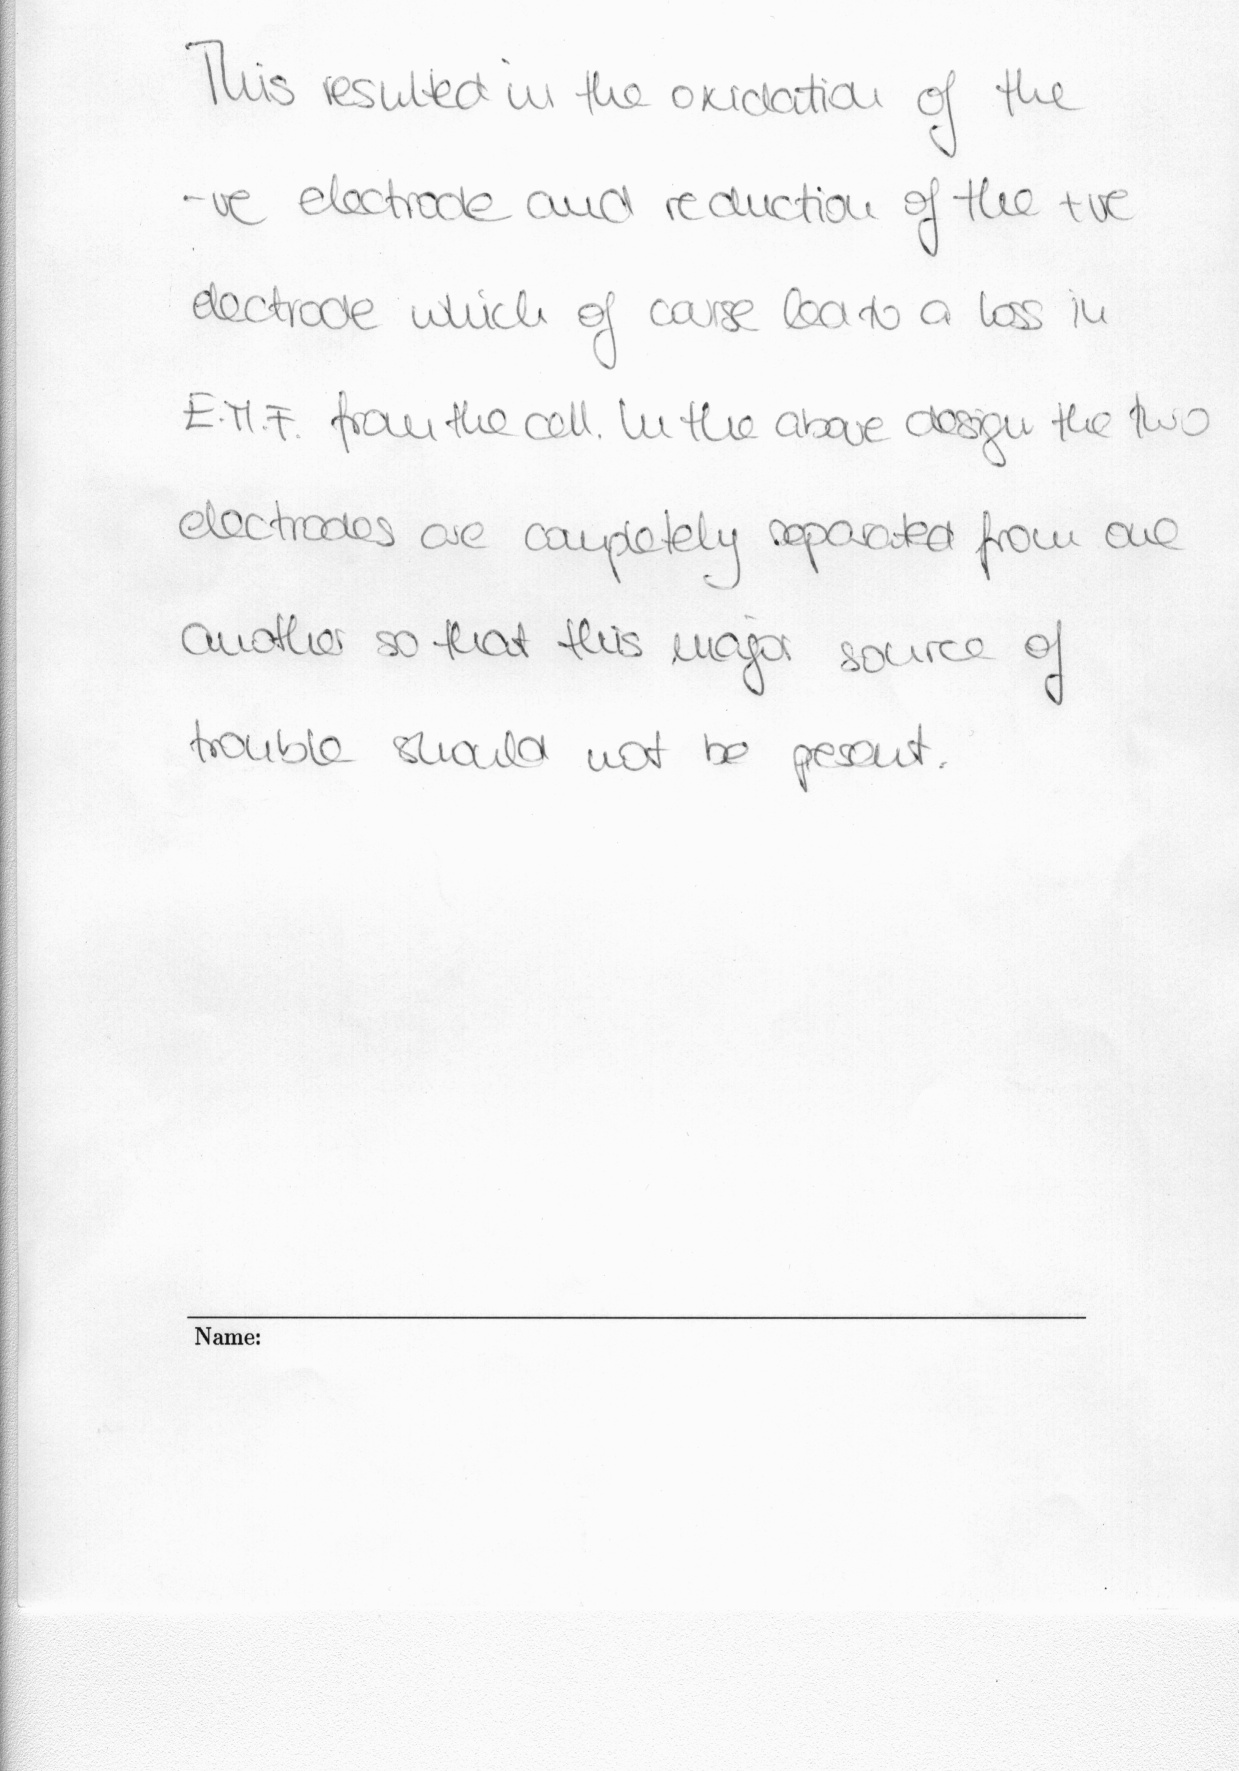 This resulted in the oxidation of the
-ve electrode and reduction of the +ve
electrode which of course lead to a loss in
E.M.F. from the cell. In the above design the two
electrodes are completely separated from one
another so that this major source of
trouble should not be present.
Name: